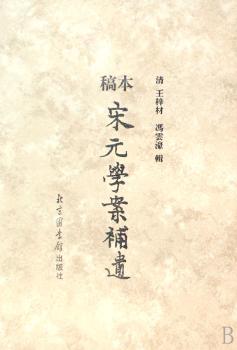 清 王梓材 馮雲濠 輯
稿本
宋元學案補遺
北京圖書館出版社
B